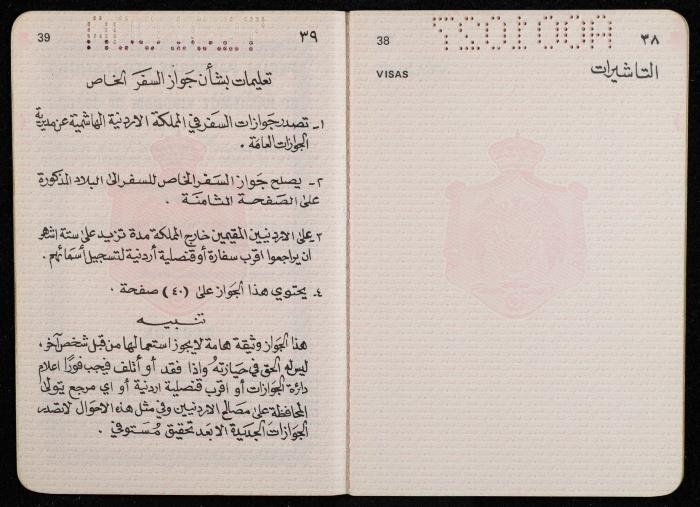 38
٣٨
VISAS
التاشيرات
39
٣٩
تعليمات بشأن جواز السفر الخاص
١- تصدر جوازات السفر في المملكة الاردنية الهاشمية عن مديرية
الجوازات العامة .
٢- يصلح جواز السفر الخاص للسفر الى البلاد المذكورة
على الصفحة الثامنة .
٣- على الاردنيين المقيمين خارج المملكة مدة تزيد على ستة اشهر
ان يراجعوا اقرب سفارة أو قنصلية أردنية لتسجيل أسمائهم .
٤- يحتوي هذا الجواز على (٤٠) صفحة .
تنبيه
هذا الجواز وثيقة هامة لا يجوز استعمالها من قبل شخص آخر ،
ليس له الحق في حيازته واذا فقد أو أتلف فيجب فورًا اعلام
دائرة الجوازات أو اقرب قنصلية اردنية أو اي مرجع يتولى
المحافظة على مصالح الاردنيين وفي مثل هذه الاحوال لا تصدر
الجوازات الجديدة الا بعد تحقيق مستوفي .